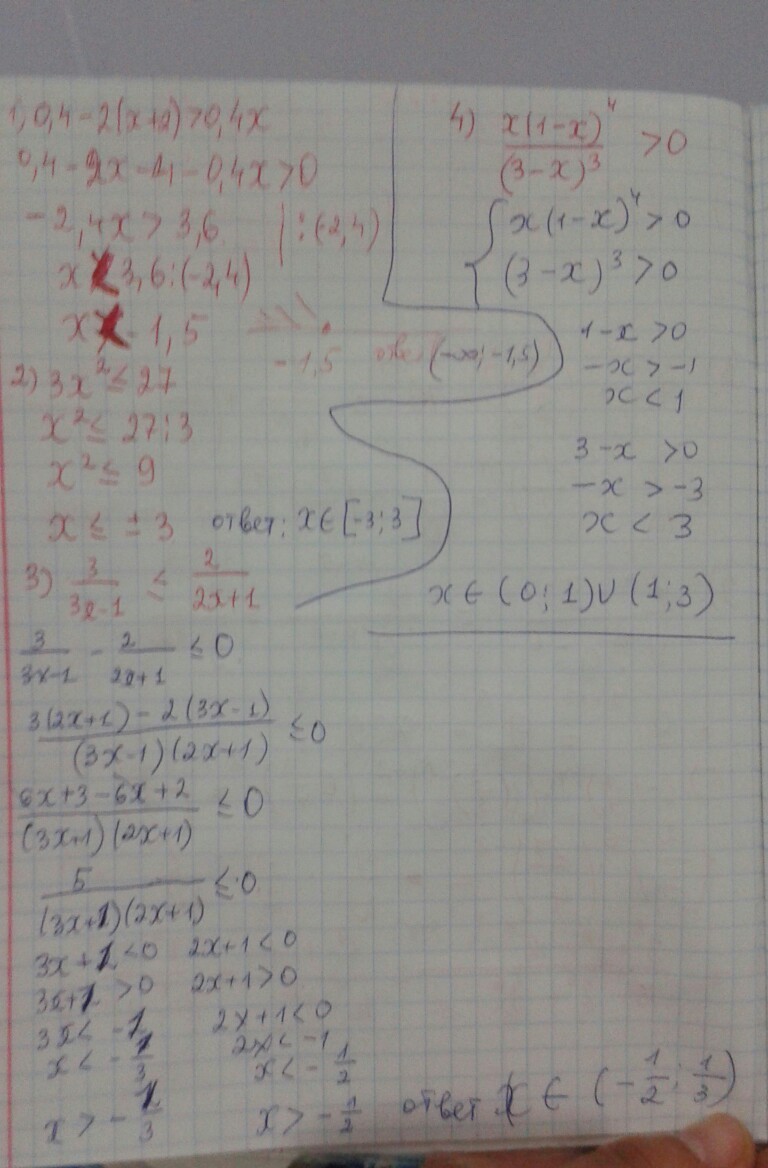 1) 0,4 - 2(x+2) > 0,4x
0,4 - 2x - 4 - 0,4x > 0
-2,4x > 3,6 | : (-2,4)
x < 3,6 : (-2,4)
x < -1,5
-1,5 ответ (-∞; -1,5)
2) 3x² ≤ 27
x² ≤ 27 : 3
x² ≤ 9
x ≤ ± 3 ответ: x ∈ [-3; 3]
3) 3/(3x-1) ≤ 2/(2x+1)
3/(3x-1) - 2/(2x+1) ≤ 0
(3(2x+1) - 2(3x-1))/((3x-1)(2x+1)) ≤ 0
(6x+3-6x+2)/((3x+1)(2x+1)) ≤ 0
5/((3x+1)(2x+1)) ≤ 0
3x+1 < 0 2x+1 < 0
3x+1 > 0 2x+1 > 0
3x < -1 2x+1 < 0
2x < -1
x < -1/3 x < -1/2
x > -1/3 x > -1/2
ответ x ∈ (-1/2; 1/3)
4) x(1-x)⁴/(3-x)³ > 0
{ x(1-x)⁴ > 0
(3-x)³ > 0
1-x > 0
-x > -1
x < 1
3-x > 0
-x > -3
x < 3
x ∈ (0; 1) ∪ (1; 3)